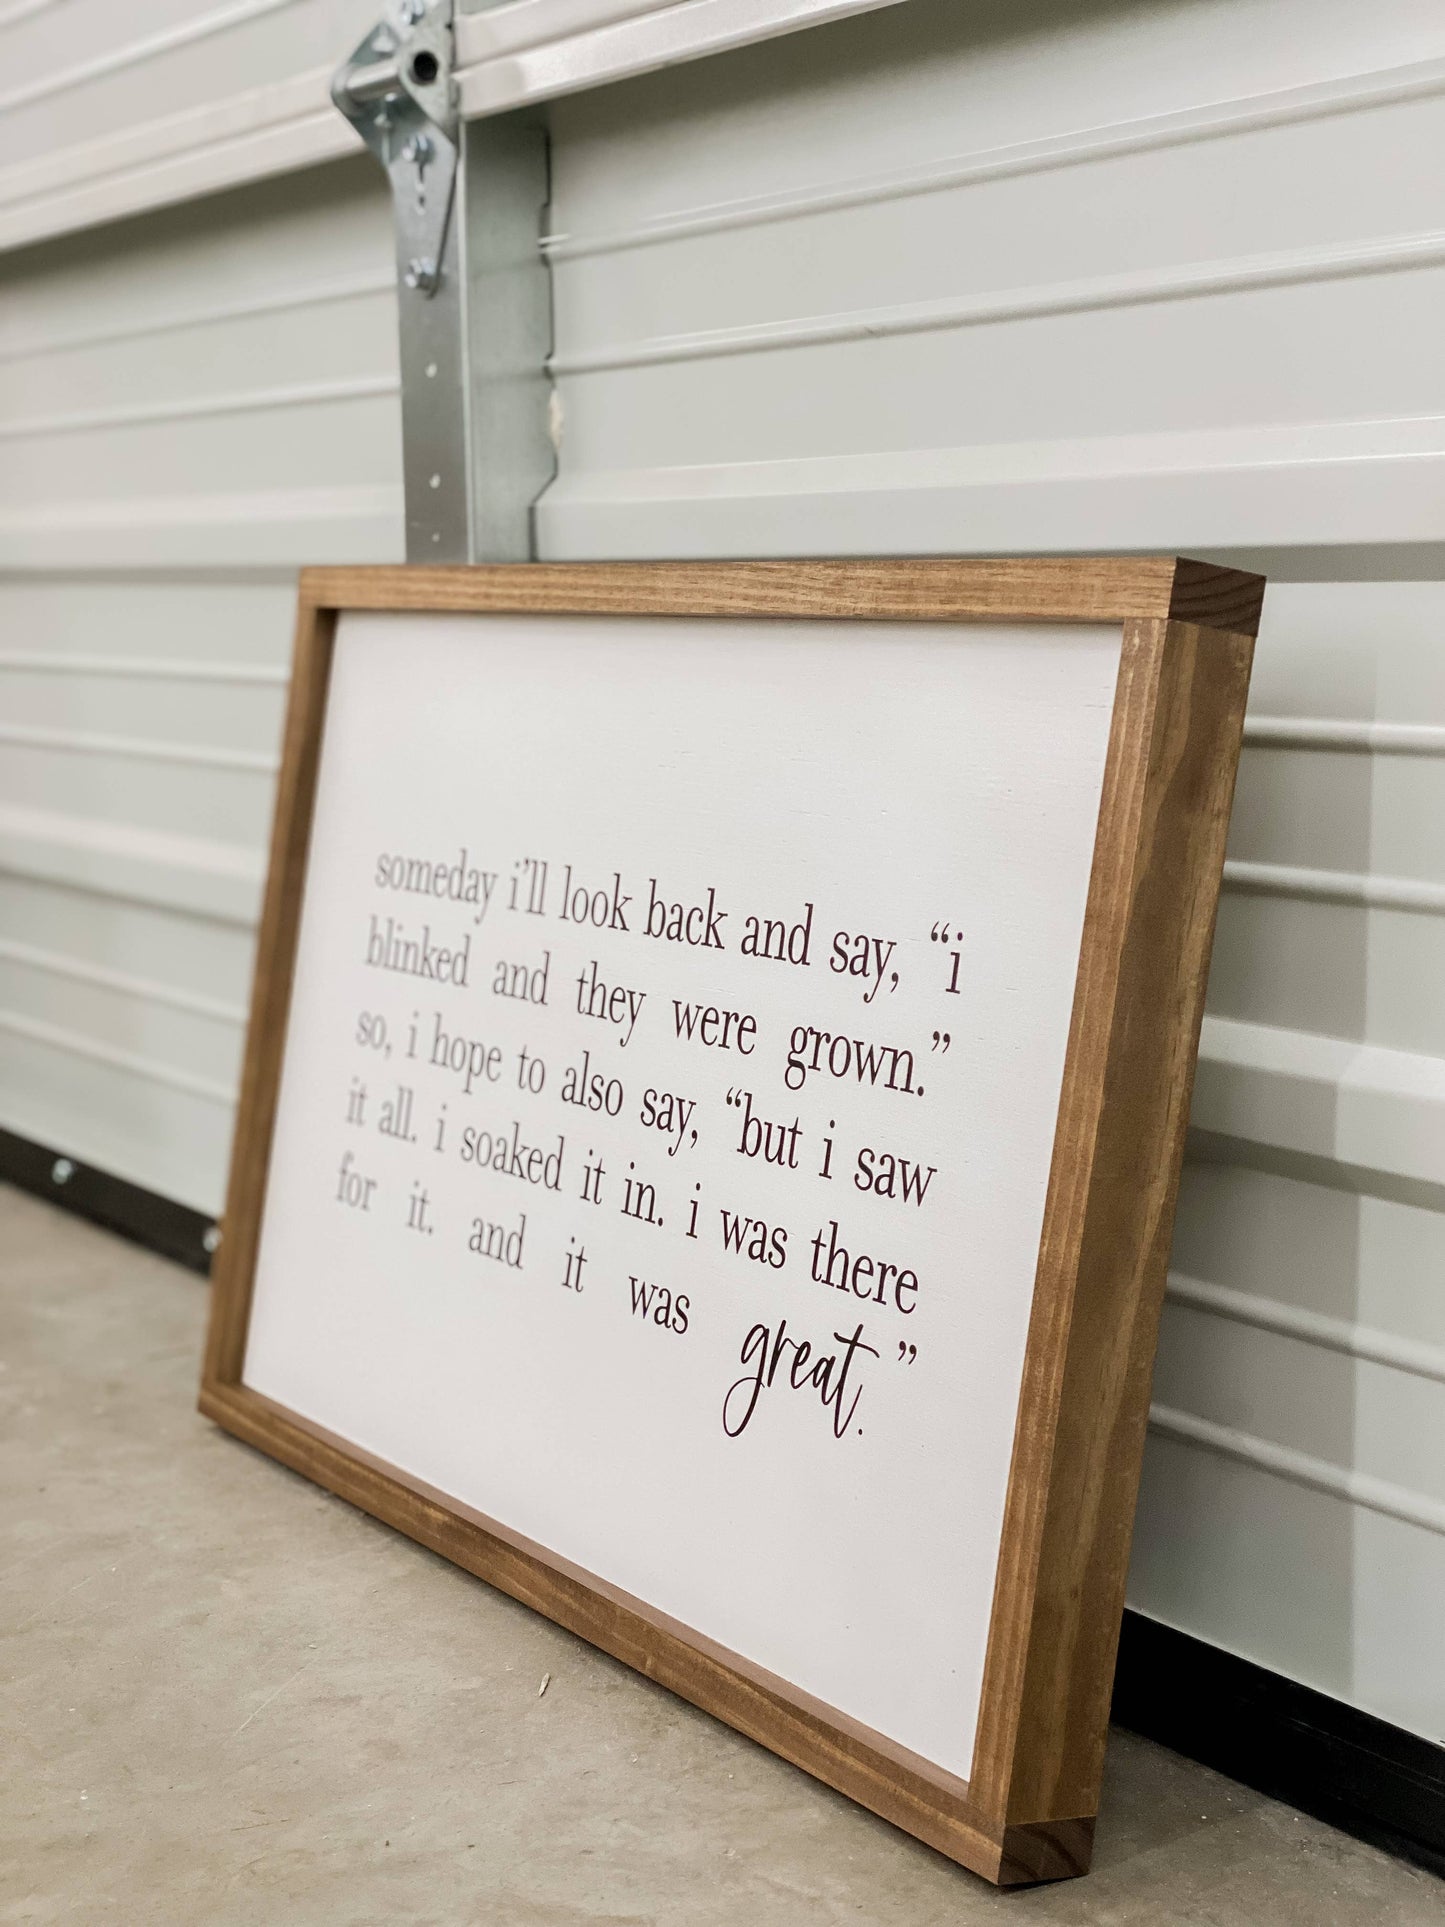 someday i’ll look back and say, “i
blinked and they were grown.”
so, i hope to also say, “but i saw
it all. i soaked it in. i was there
for it. and it was great.”